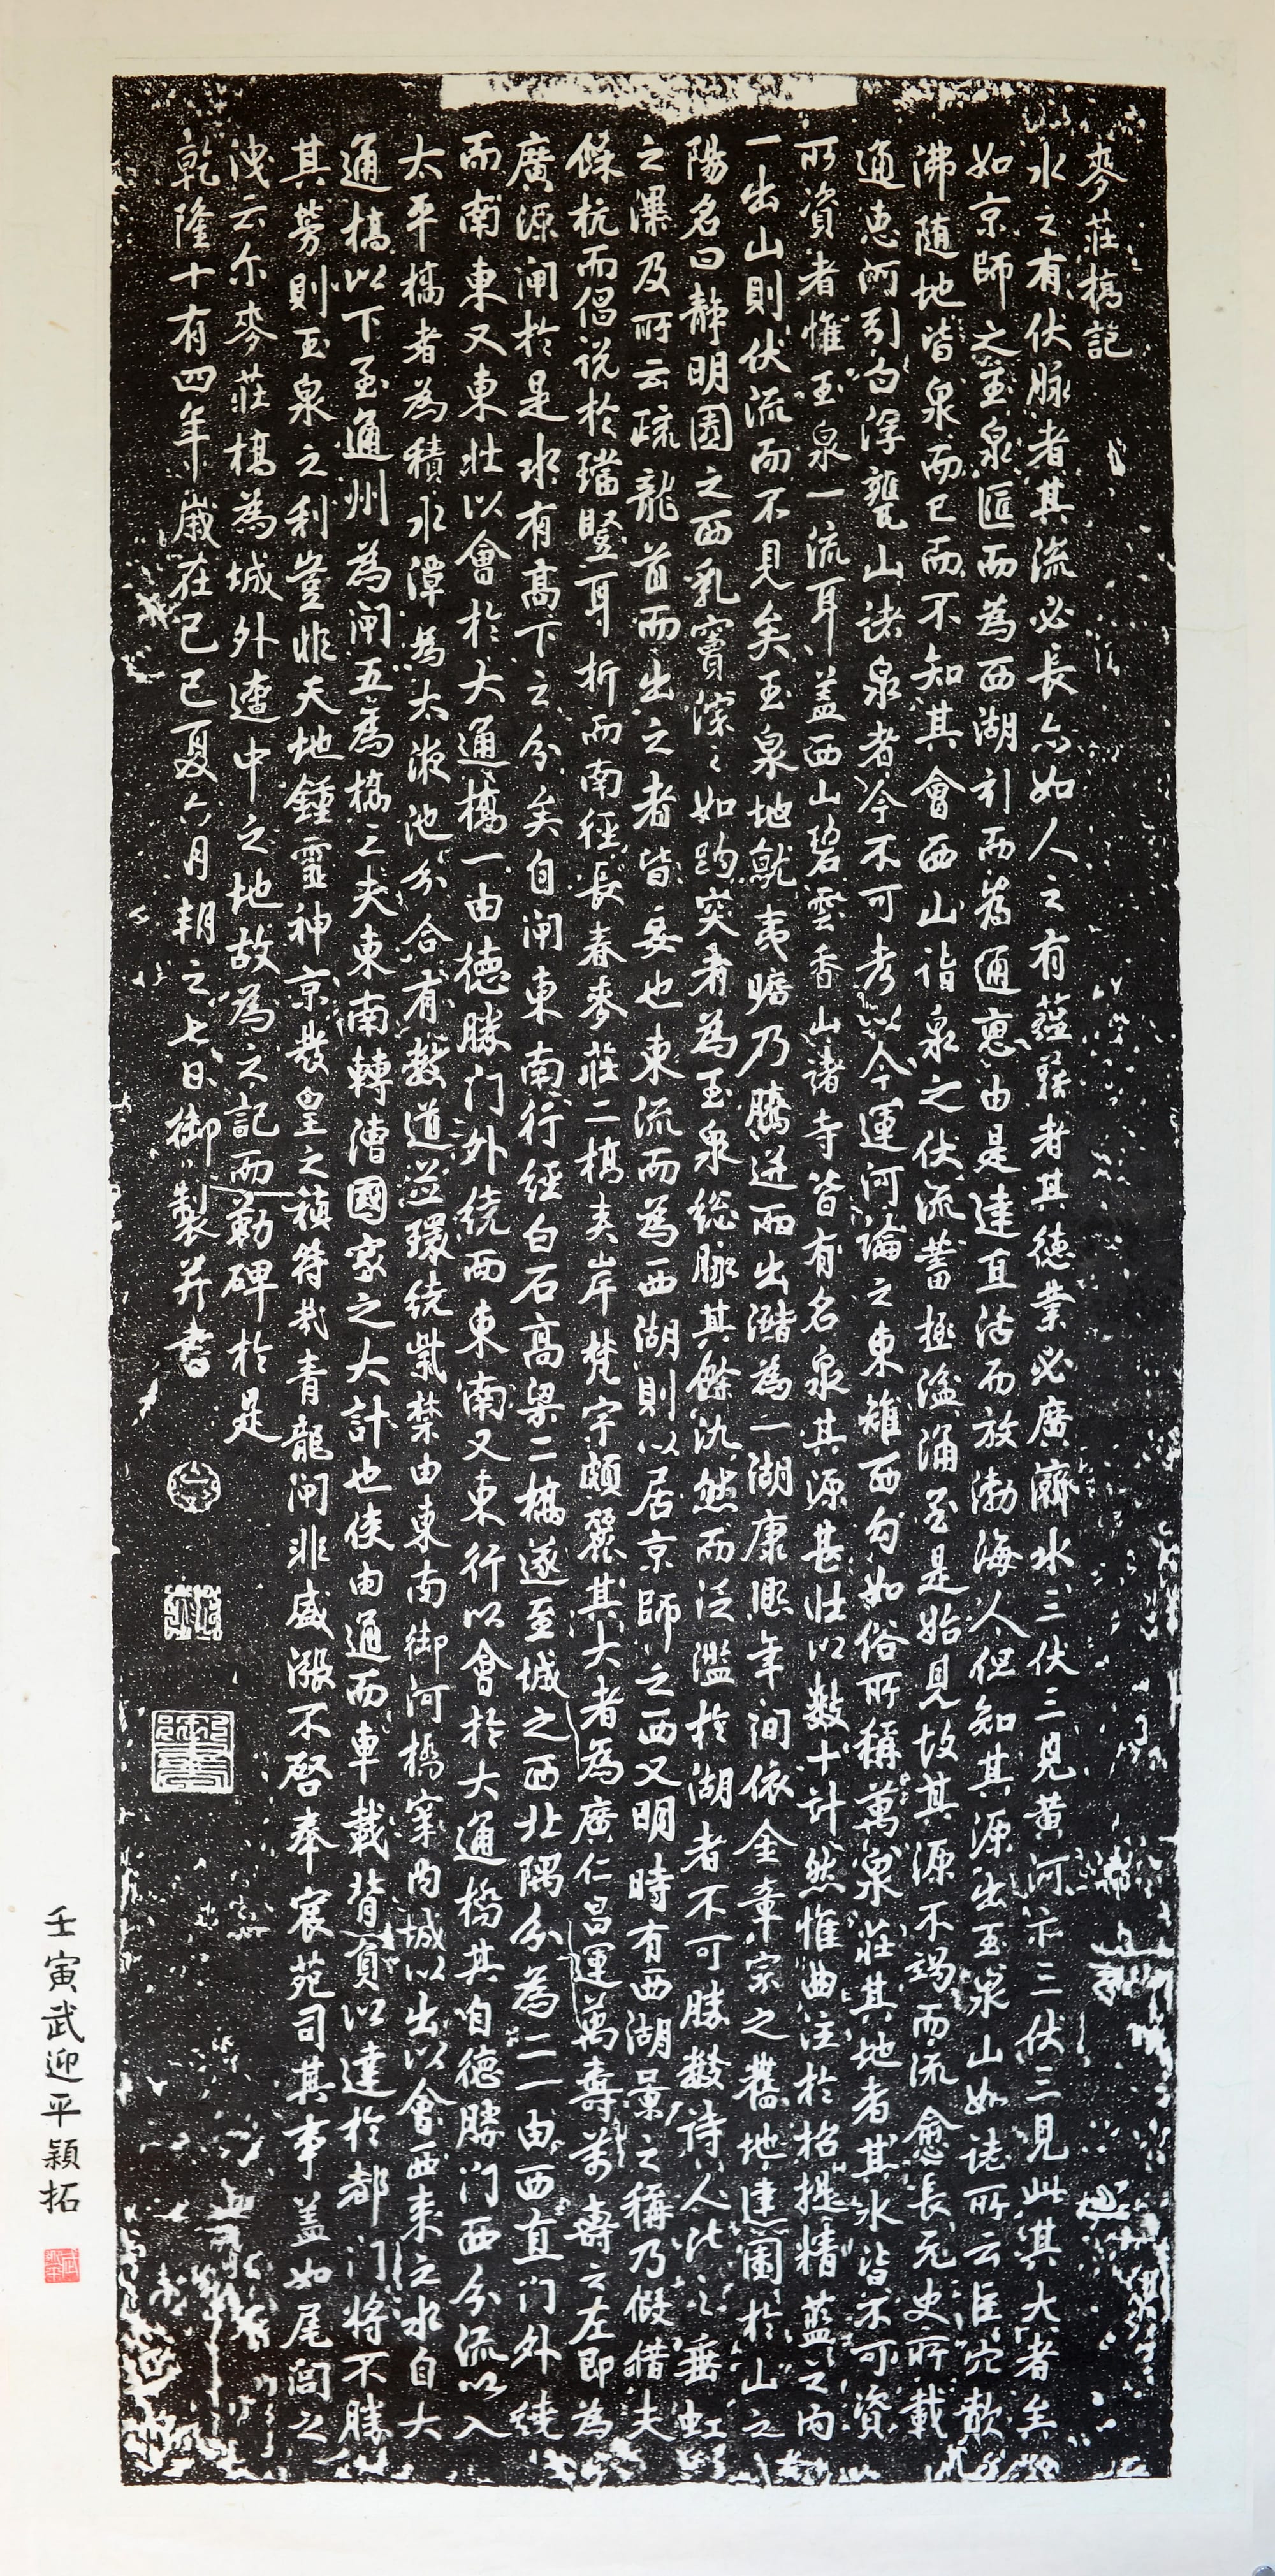 麥莊橋記
水之有伏脉者其流必長亦如人之有蘊藉者其德業必廣濟水三伏三見黃河亦三伏三見此其大者矣
如京師之玉泉匯而為西湖引而為通惠由是達直沽而放渤海人但知其源出玉泉山如志所云巨穴歕
沸随地皆泉而已而不知其會西山諸泉之伏流蓄極湓涌至是始見故其源不竭而流愈長元史所載
通惠河引白浮甕山諸泉者今不可考以今運河論之東雉西勾如俗所稱萬泉莊其地者其水皆不可資
所資者惟玉泉一流耳蓋西山碧雲香山諸寺皆有名泉其源甚壯以數十計然惟曲注於招提精藍之内
一出山則伏流而不見矣玉泉地就夷曠乃騰迸而出瀦為一湖康熙年間依金章宗之舊地建園於山之
陽名曰靜明園之西乳竇淙々如趵突者為玉泉總脉其餘氿然而泛濫於湖者不可勝數詩人比之垂虹
之瀑及所云疏龍首而出之者皆妄也東流而為西湖則以居京師之西又明時有西湖景之稱乃倣借夫
餘杭而倡说於璫豎耳折而南經長春麥莊二橋夹岸梵宇頗麗其大者為廣仁昌運萬壽萬壽之左即為
廣源闸於是水有高下之分矣自闸東南行經白石高梁二橋遂至城之西北隅分為二一由西直门外繞
而南東又東壮以會於大通橋一由德勝门外繞而東南又東行以會於大通橋其自德勝门西分流以入
太平橋者為積水潭為太液池分合有數道並環繞紫禁由東南御河橋穿内城以出以會西來之水自大
通橋以下至通州為闸五為橋三夫東南轉漕國家之大計也使由通而車載背負以達於都门將不勝
其勞則玉泉之利豈非天地鍾靈神京發皇之禎符哉青龍闸非盛漲不啓奉宸苑司其事蓋如尾閭之
洩云尔麥莊橋為城外遭中之地故為之記而勒碑於是
乾隆十有四年歲在己巳夏六月朔之七日御製并書
壬寅武迎平穎拓